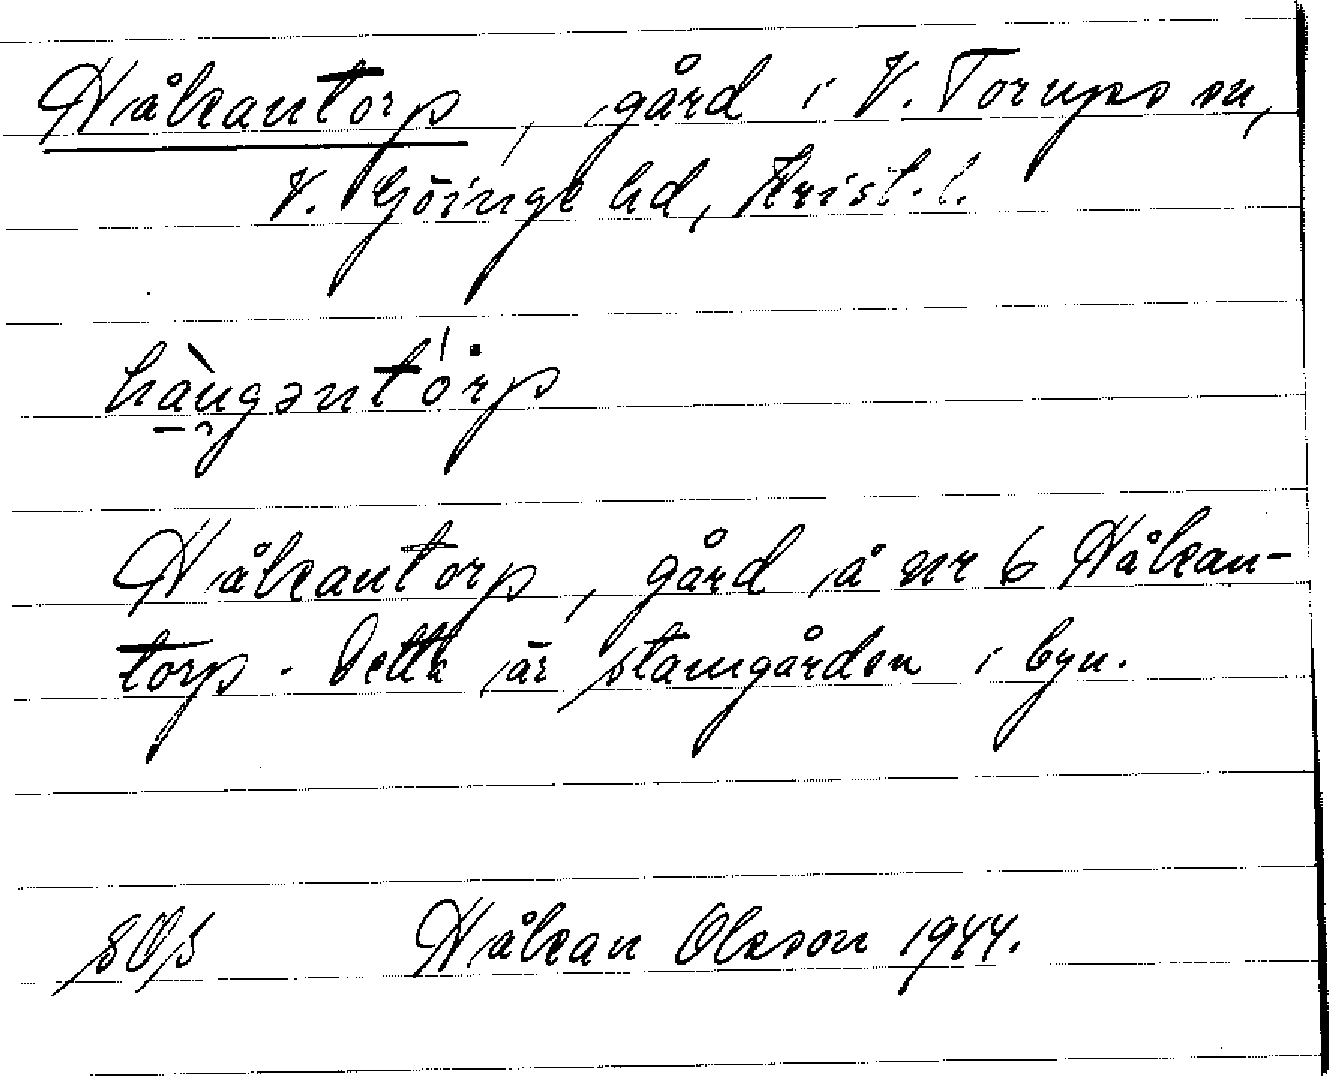 Håkantorp, gård i V. Torups sn,
V. Göinge hd, Krist. l.
hàugəntórp
Håkantorp, gård å nr 6 Håkan-
torp. Detta är stamgården i byn.
Håkan Olsson 1944.